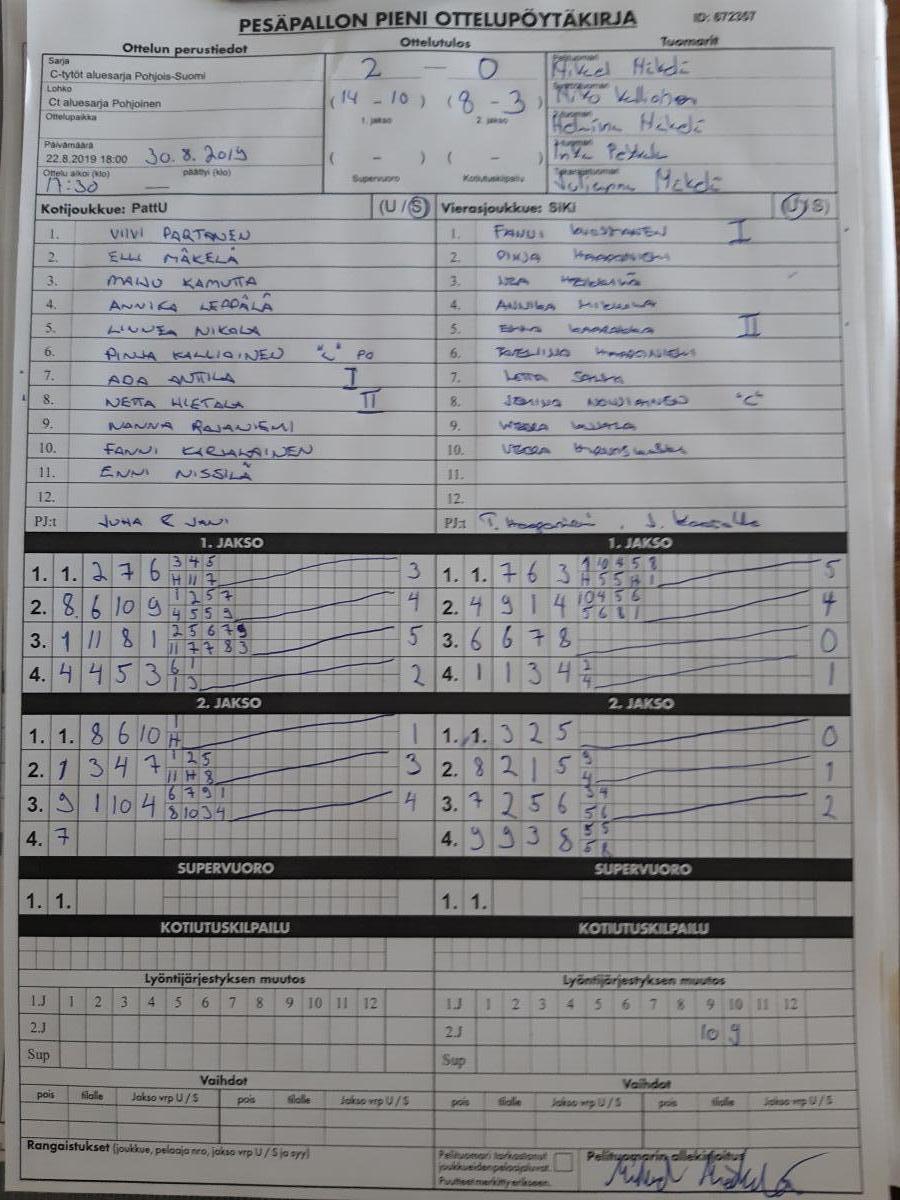 PESÄPALLON PIENI OTTELUPÖYTÄKIRJA ID: 672357
Ottelun perustiedot Ottelutulos Tuomarit
Sarja
C-tytöt aluesarja Pohjois-Suomi
Lohko
Ct aluesarja Pohjoinen
Ottelupaikka
Päivämäärä
22.8.2019 18:00 30.8.2019
Ottelu alkoi (klo) päättyi (klo)
17:30 —
2 — 0
(14 - 10) (8 - 3)
1. jakso 2. jakso
( - ) ( - )
Supervuoro Kotiutuskilpailu
Mikael Mäkelä
Helmiina Mäkelä
Julianna Mäkelä
Kotijoukkue: PattU (U / S) Vierasjoukkue: SiKi (U / S)
1. VIIVI PARTANEN 1. FANNI I
2. ELLI MÄKELÄ 2. PINJA HAAPANIEMI
3. MAIJU KAMUTTA 3.
4. ANNIKA LEPPÄLÄ 4. ANNIKA
5. LINNEA NIKOLA 5. II
6. PINJA KALLIAINEN "C" PO 6. HAAPANIEMI
7. ADA ANTTILA I 7.
8. NETTA HIETALA II 8. "C"
9. NANNA RAJANIEMI 9.
10. FANNI KARJALAINEN 10.
11. ENNI NISSILÄ 11.
12. 12.
PJ:t JUHA & JANI PJ:t T. Haapaniemi, J.
1. JAKSO 1. JAKSO
1. 1. 2 7 6 3 4 5 3 1. 1. 7 6 3 1 10 4 5 8 5
H 11 7 H 5 5 H 1
2. 8 6 10 9 1 2 5 7 4 2. 4 9 1 4 10 4 5 6 4
4 5 5 9 5 6 8 1
3. 1 11 8 1 2 5 6 7 9 5 3. 6 6 7 8 0
11 7 7 8 3
4. 4 4 5 3 6 1 2 4. 1 1 3 4 2 1
1 3 4
2. JAKSO 2. JAKSO
1. 1. 8 6 10 1 1 1. 1. 3 2 5 0
H
2. 1 3 4 7 1 2 5 3 2. 8 2 1 5 9 1
11 H 8 4
3. 9 1 10 4 6 7 9 1 4 3. 7 2 5 6 3 4 2
8 10 3 4 5 6
4. 7 4. 9 9 3 8 5 5
5 8
SUPERVUORO SUPERVUORO
1. 1. 1. 1.
KOTIUTUSKILPAILU KOTIUTUSKILPAILU
Lyöntijärjestyksen muutos Lyöntijärjestyksen muutos
1.J 1 2 3 4 5 6 7 8 9 10 11 12 1.J 1 2 3 4 5 6 7 8 9 10 11 12
2.J 2.J 10 9
Sup Sup
Vaihdot Vaihdot
pois tilalle Jakso vrp U / S pois tilalle Jakso vrp U / S pois tilalle Jakso vrp U / S pois tilalle Jakso vrp U / S
Rangaistukset (joukkue, pelaaja nro, jakso vrp U / S ja syy)
Pelituomari tarkastanut
joukkueiden pelaajaluvat.
Puutteet merkitty erikseen.
Pelituomarin allekirjoitus